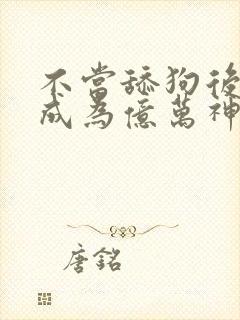 不當舔狗後
成為億萬神
唐銘